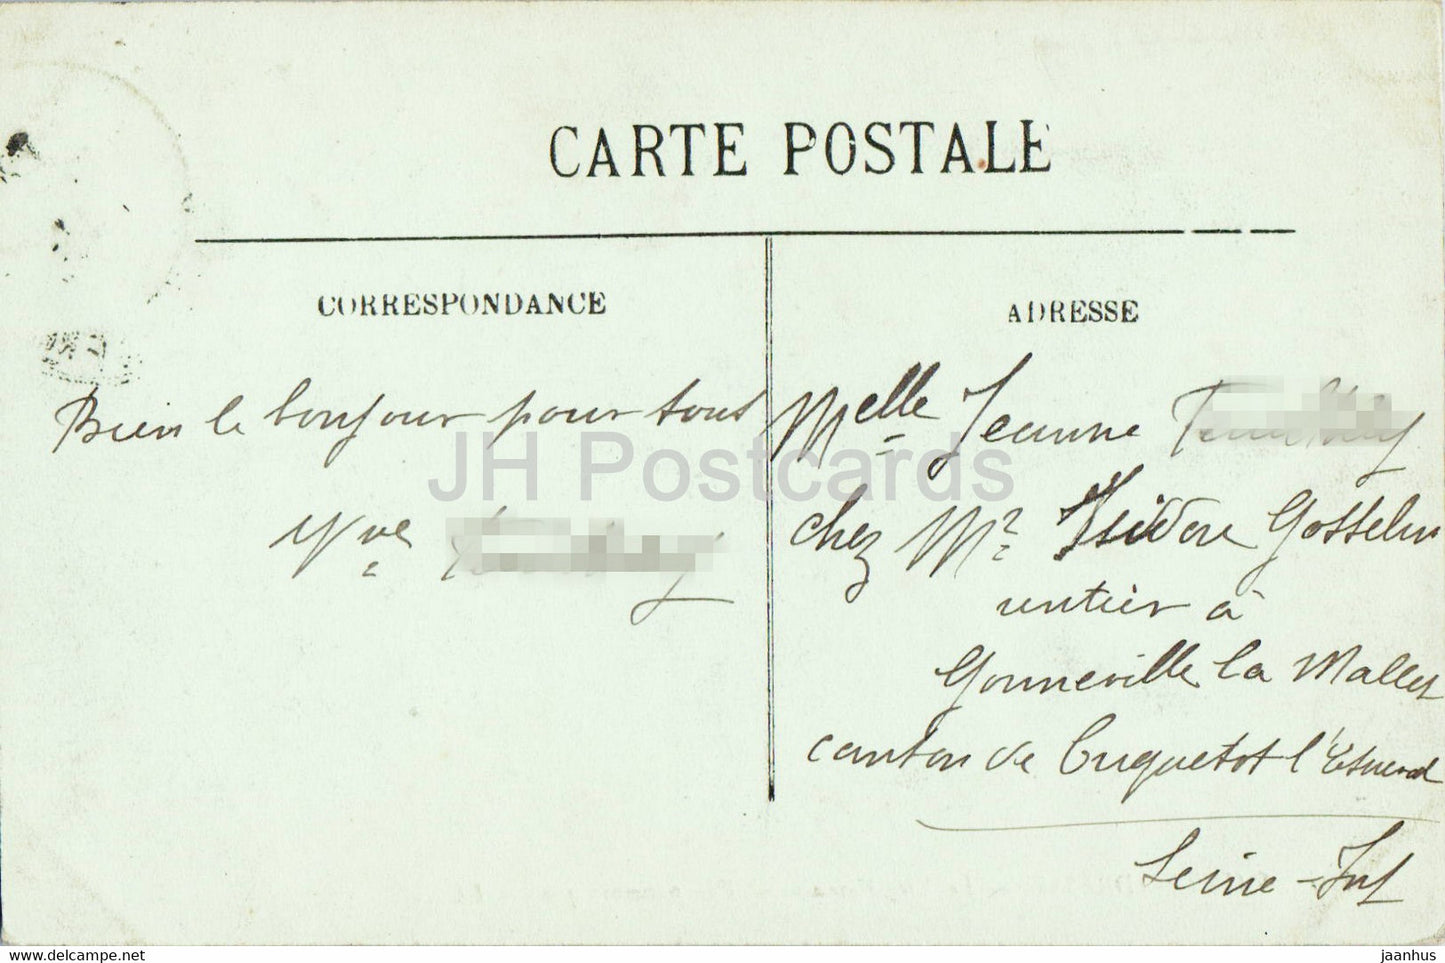 CARTE POSTALE
CORRESPONDANCE
ADRESSE
Bien le bonjour pour tous
Vve
Melle Jeanne
chez Mr Isidore Gosselin
rentier à
Gonneville la Mallet
canton de Criquetot l'Esneval
Seine-Inf
JH Postcards
www.delcampe.net
jaanhus